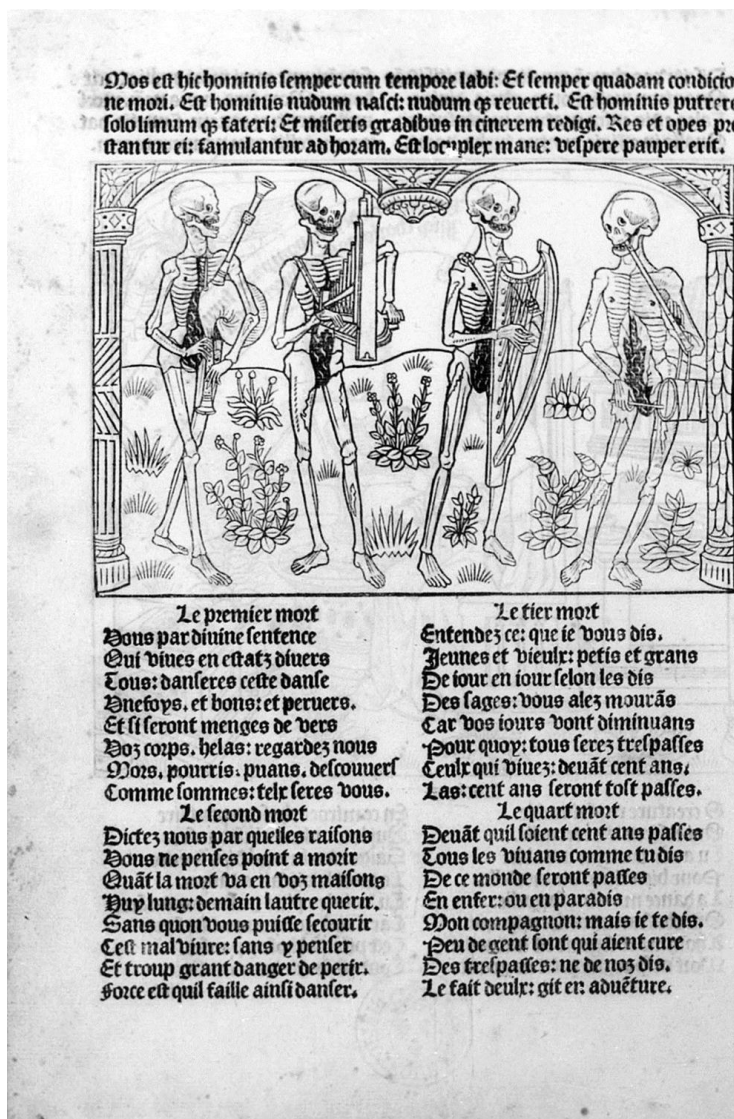 Mos est hic hominis semper cum tempore labi: Et semper quadam condicio
ne mori. Est hominis nudum nasci: nudum qȝ reuerti. Est hominis putrere
solo limum qȝ fateri: Et miseris gradibus in cinerem redigi. Res et opes pre
stantur ei: famulantur ad horam. Est locuplex mane: vespere pauper erit.
Le premier mort
Vous par diuine sentence
Qui viues en estatz diuers
Tous: danseres ceste danse
Vnefoys. et bons: et peruers.
Et si seront menges de vers
Voz corps. helas: regardez nous
Mors. pourris. puans. descouuers
Comme sommes: telx seres vous.
Le second mort
Dictez nous par quelles raisons
Vous ne penses point a morir
Quãt la mort va en voz maisons
Huy lung: demain lautre querir.
Sans quon vous puisse secourir
Cest mal viure: sans y penser
Et troup grant danger de perir.
Force est quil faille ainsi danser.
Le tier mort
Entendez ce: que ie vous dis.
Jeunes et vieulx: petis et grans
De iour en iour selon les dis
Des sages: vous alez mourãs
Car vos iours vont diminuans
Pour quoy: tous serez trespasses
Ceulx qui viuez: deuãt cent ans.
Las: cent ans seront tost passes.
Le quart mort
Deuãt quil soient cent ans passes
Tous les viuans comme tu dis
De ce monde seront passes
En enfer: ou en paradis
Mon compagnon: mais ie te dis.
Peu de gent sont qui aient cure
Des trespasses: ne de noz dis.
Le fait deulx: git en aduẽture.